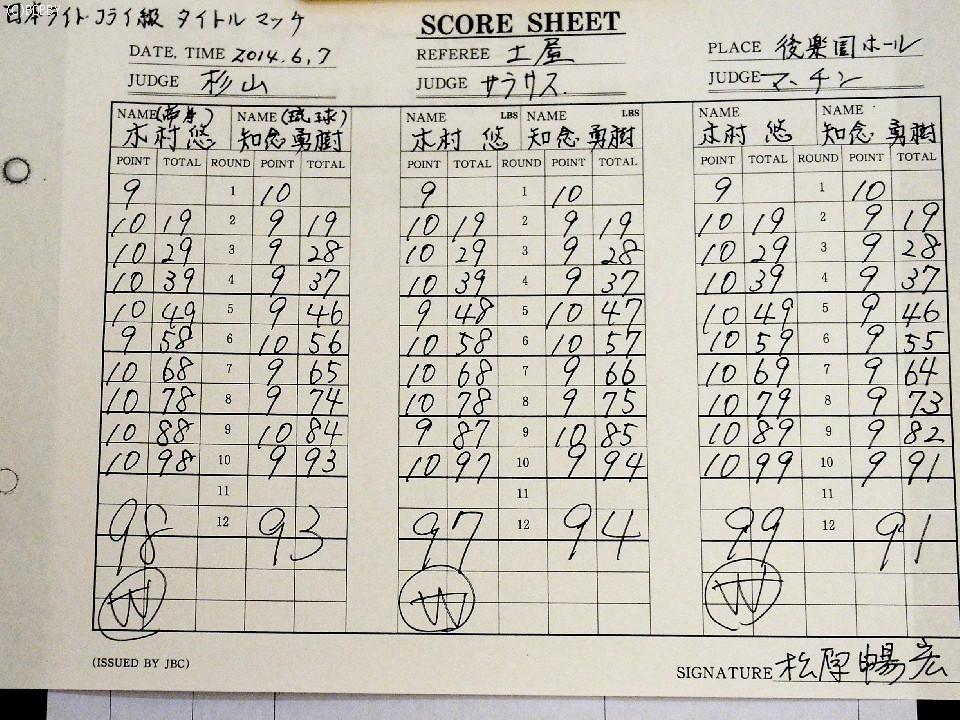 (C) BOBBY
日本ライトフライ級 タイトルマッチ
SCORE SHEET
DATE, TIME 2014.6.7 REFEREE 土屋 PLACE 後楽園ホール
JUDGE 杉山 JUDGE サラサス JUDGE マーチン
NAME (帝拳) NAME (琉球) NAME LBS NAME LBS NAME NAME
木村 悠 知念 勇樹 木村 悠 知念 勇樹 木村 悠 知念 勇樹
POINT TOTAL ROUND POINT TOTAL POINT TOTAL ROUND POINT TOTAL POINT TOTAL ROUND POINT TOTAL
9 1 10 9 1 10 9 1 10
10 19 2 9 19 10 19 2 9 19 10 19 2 9 19
10 29 3 9 28 10 29 3 9 28 10 29 3 9 28
10 39 4 9 37 10 39 4 9 37 10 39 4 9 37
10 49 5 9 46 9 48 5 10 47 10 49 5 9 46
9 58 6 10 56 10 58 6 10 57 10 59 6 9 55
10 68 7 9 65 10 68 7 9 66 10 69 7 9 64
10 78 8 9 74 10 78 8 9 75 10 79 8 9 73
10 88 9 10 84 9 87 9 10 85 10 89 9 9 82
10 98 10 9 93 10 97 10 9 94 10 99 10 9 91
11 11 11
98 12 93 97 12 94 99 12 91
W W W
(ISSUED BY JBC) SIGNATURE 松原 暢宏